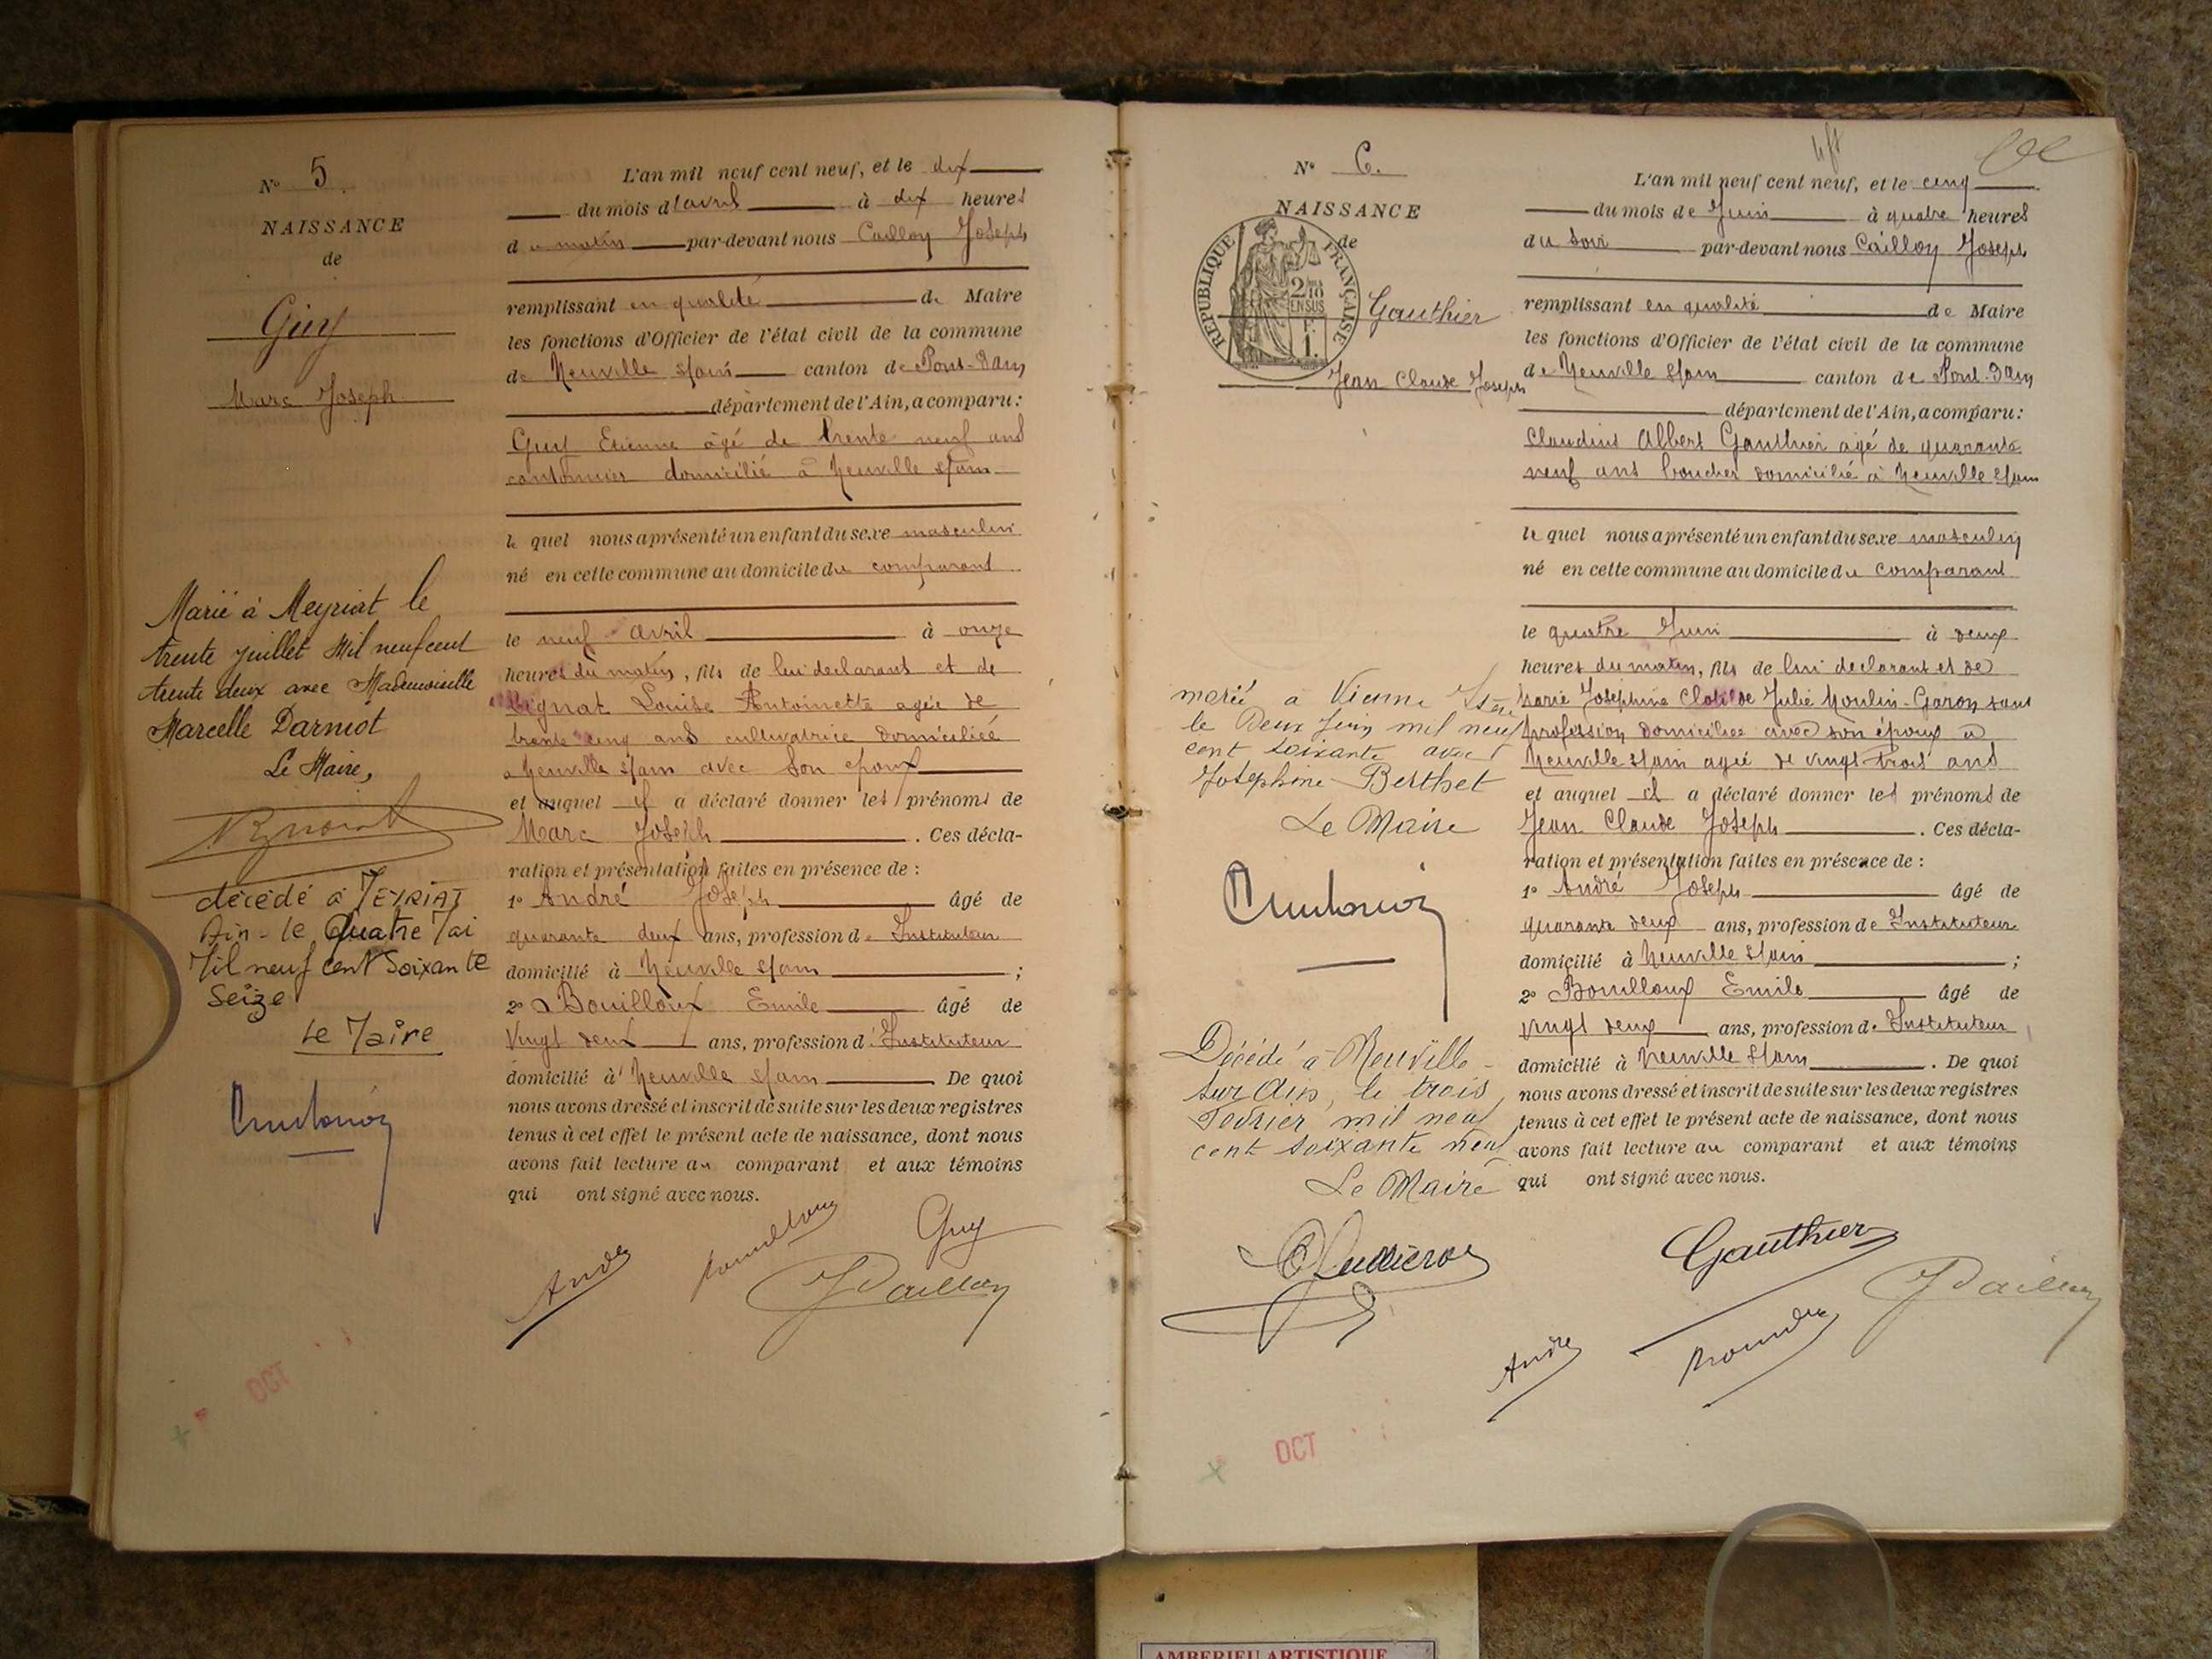 N° 5
NAISSANCE
de
Guy
Marc Joseph
Marié à Meyriat le
trente juillet Mil neuf cent
trente deux avec Mademoiselle
Marcelle Darmot
Le Maire,
décédé à MEYRIAT
Ain - le Quatre Mai
Mil neuf cent Soixante
Seize
Le Maire
L'an mil neuf cent neuf, et le dix
du mois d'avril à dix heures
du matin par-devant nous Cailloy Joseph
remplissant en qualité de Maire
les fonctions d'Officier de l'état civil de la commune
de Neuville s/ain canton de Pont-d'Ain
département de l'Ain, a comparu :
Guy Etienne âgé de trente neuf ans
cantonnier domicilié à Neuville s/ain
lequel nous a présenté un enfant du sexe masculin
né en cette commune au domicile du comparant
le neuf avril à onze
heures du matin, fils de lui declarant et de
Pignat Louise Antoinette agée de
trente cinq ans cultivatrice domiciliée
a Neuville s/ain avec son époux
et auquel il a déclaré donner les prénoms de
Marc Joseph. Ces décla-
ration et présentation faites en présence de :
1° André Joseph âgé de
quarante deux ans, profession de Instituteur
domicilié à Neuville s/ain ;
2° Bouilloux Emile âgé de
vingt deux ans, profession d'Instituteur
domicilié à Neuville s/ain. De quoi
nous avons dressé et inscrit de suite sur les deux registres
tenus à cet effet le présent acte de naissance, dont nous
avons fait lecture au comparant et aux témoins
qui ont signé avec nous.
Guy
André
Bouilloux
JCailloy
OCT
N° 6.
NAISSANCE
de
REPUBLIQUE FRANÇAISE
2/10
EN SUS
1 F.
Gauthier
Jean Claude Joseph
marié à Vienne Isère
le Deux Juin mil neuf
cent soixante avec
Josephine Berthet
Le Maire
Décédé à Neuville-
sur Ain, le trois
Février mil neuf
cent soixante neuf
Le Maire
L'an mil neuf cent neuf, et le cinq
du mois de Juin à quatre heures
du soir par-devant nous Cailloy Joseph
remplissant en qualité de Maire
les fonctions d'Officier de l'état civil de la commune
de Neuville s/ain canton de Pont-d'Ain
département de l'Ain, a comparu :
Claudius Albert Gauthier agé de quarante
neuf ans boucher domicilié à Neuville s/ain
lequel nous a présenté un enfant du sexe masculin
né en cette commune au domicile du comparant
le quatre Juin à deux
heures du matin, fils de lui declarant et de
Marie Josephine Clotilde Julie Moulin-Garon sans
profession domiciliée avec son époux à
Neuville s/ain agée de vingt trois ans
et auquel il a déclaré donner les prénoms de
Jean Claude Joseph. Ces décla-
ration et présentation faites en présence de :
1° André Joseph âgé de
quarante deux ans, profession de Instituteur
domicilié à Neuville s/ain ;
2° Bouilloux Emile âgé de
vingt deux ans, profession d'Instituteur
domicilié à Neuville s/ain. De quoi
nous avons dressé et inscrit de suite sur les deux registres
tenus à cet effet le présent acte de naissance, dont nous
avons fait lecture au comparant et aux témoins
qui ont signé avec nous.
Gauthier
JCailloy
André
Bouilloux
OCT
AMBERIEU ARTISTIQUE